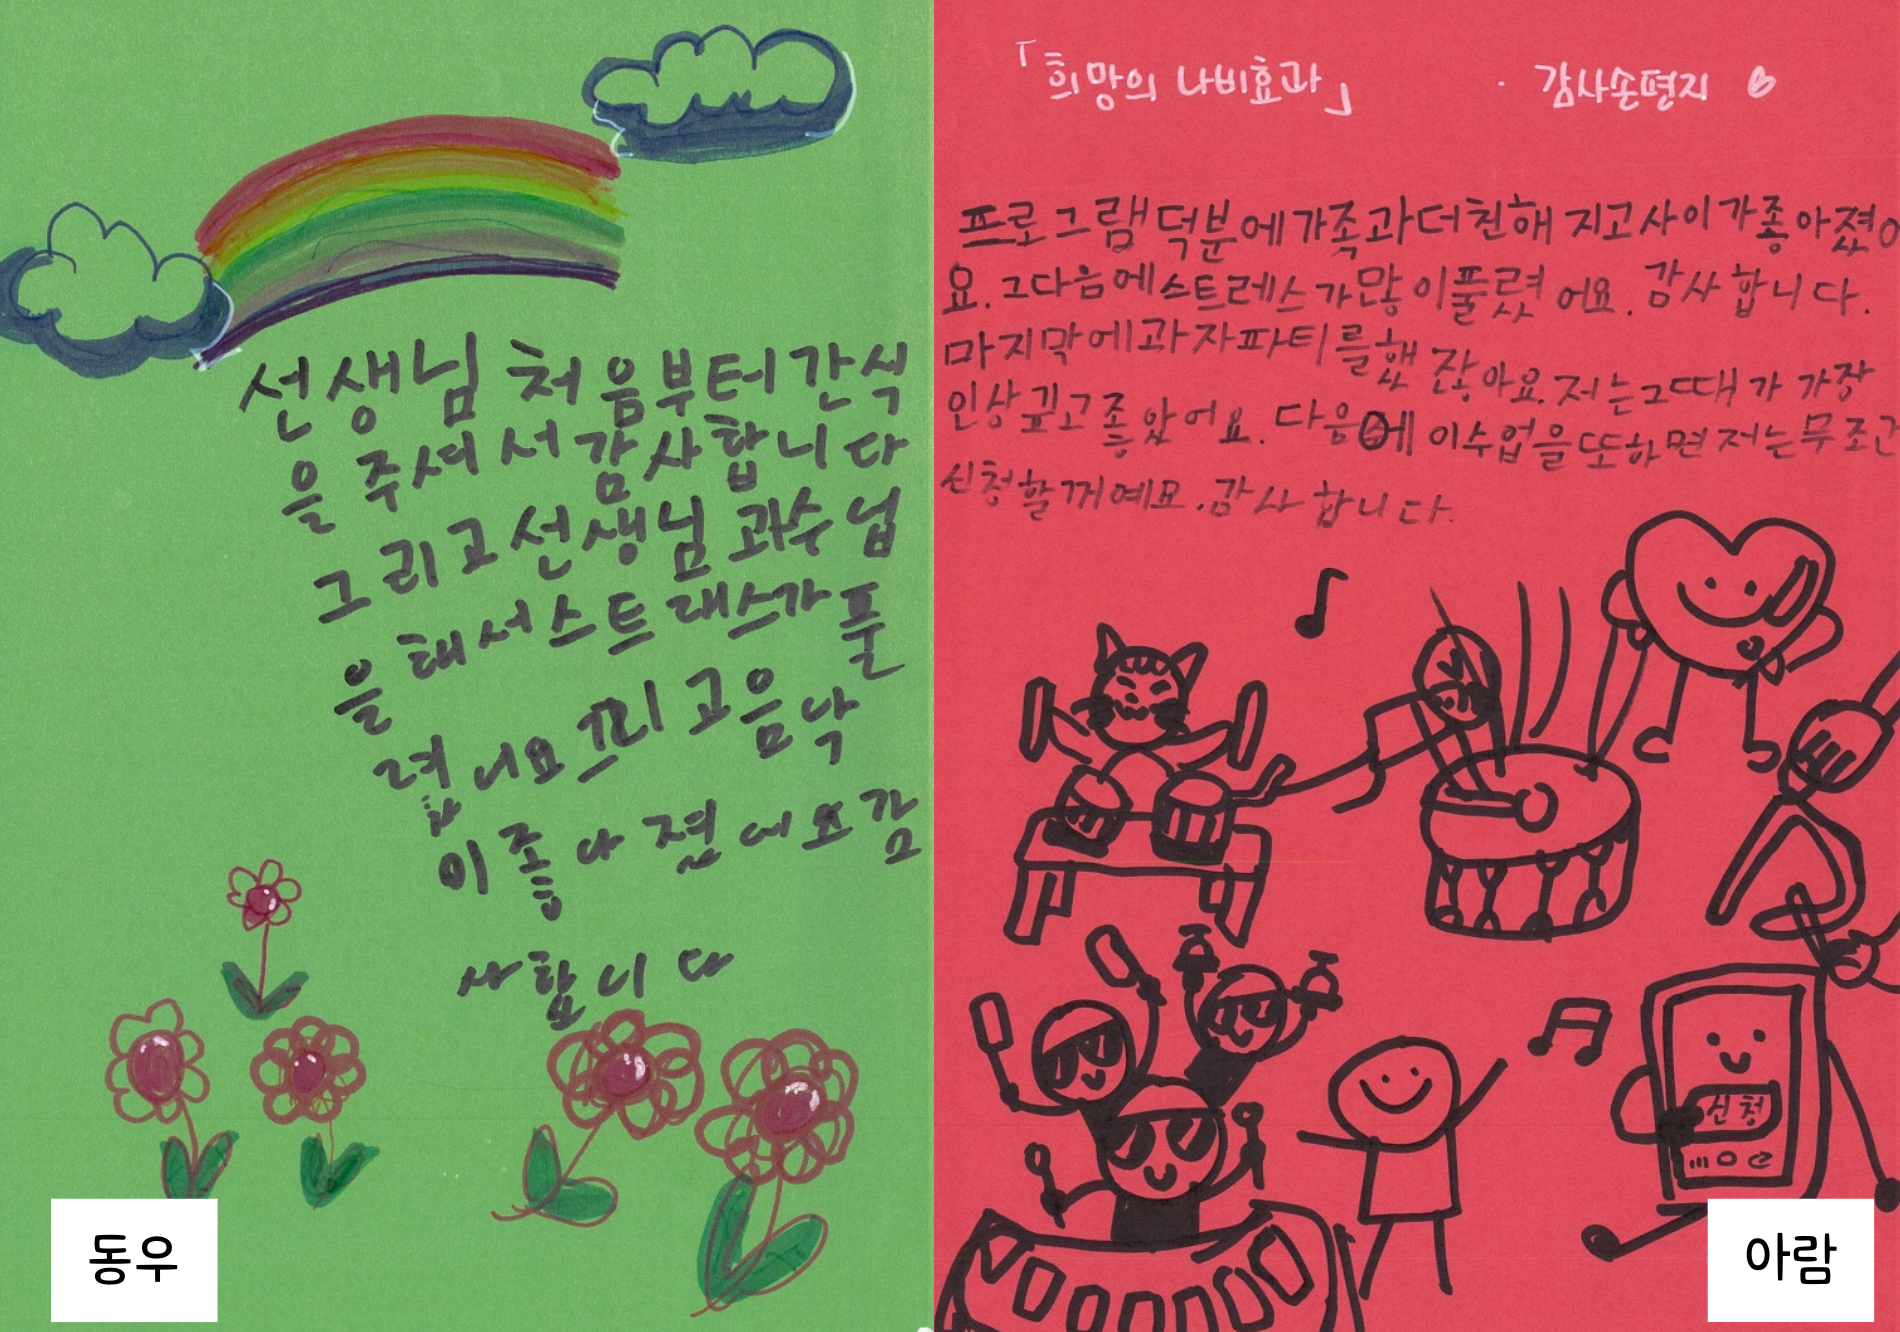 선생님 처음부터 간식
을 주셔서 감사합니다
그리고 선생님 과수님
을 해서 스트래스가 풀
렸어요 그리고 음낙
이 좋아졌어요 감
사합니다
동우
「희망의 나비효과」 · 감사손편지
프로그램 덕분에 가족과 더 친해지고 사이가 좋아졌어
요. 그다음에 스트레스가 많이 풀렸어요. 감사합니다.
마지막에 과자파티를 했잖아요. 저는 그때가 가장
인상깊고 좋았어요. 다음에 이수업을 또하면 저는 무조건
신청할꺼예요. 감사합니다.
신청
아람